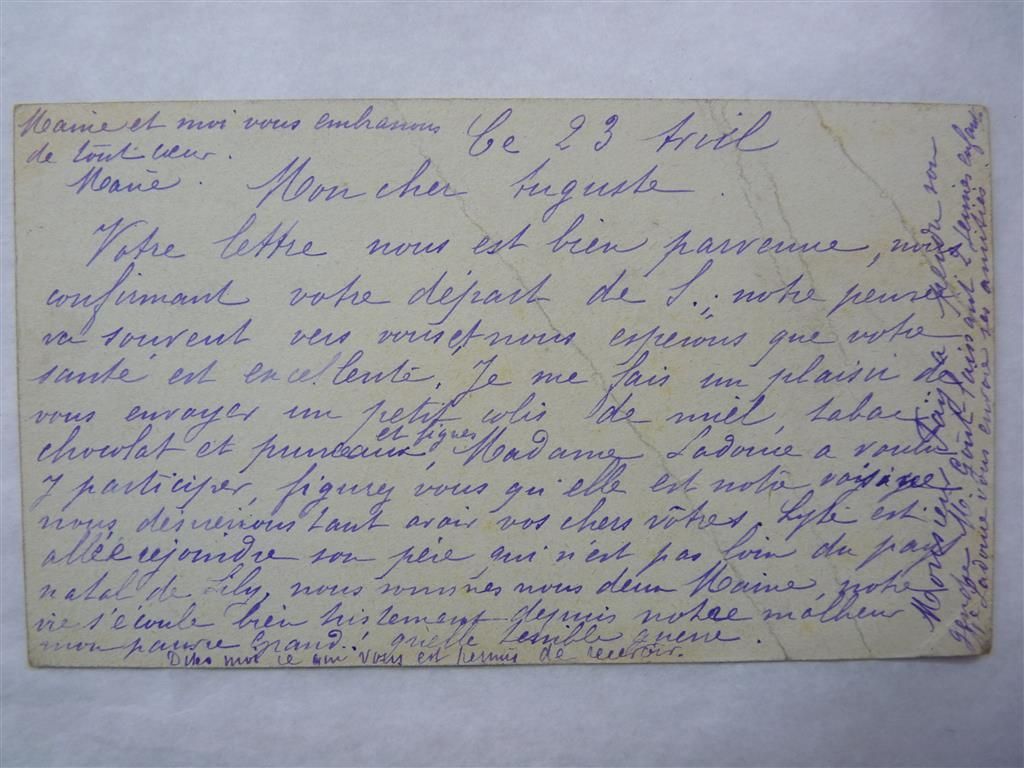 Ce 23 Avril
Mon cher Auguste.
Votre lettre nous est bien parvenue, nous
confirmant votre départ de S.; notre pensée
va souvent vers vous et nous espérons que votre
santé est excellente. Je me fais un plaisir de
vous envoyer un petit colis de miel, tabac
chocolat et pruneaux et figues, Madame Ladoue a voulu
y participer, figurez vous qu'elle est notre voisine
nous désirerions tant avoir vos chers vôtres. est
allée rejoindre son père qui n'est pas loin du pays
natal de Lily, nous sommes nous deux Maine, notre
vie s'écoule bien tristement depuis notre malheur
mon pauvre Grand! quelle terrible guerre.
Dites moi ce que vous est permis de recevoir.
Monsieur va prendre son
2 femmes enfants
Ladoue vous envoie ses amitiés
Maine et moi vous embrassons
de tout cœur.
Marie.